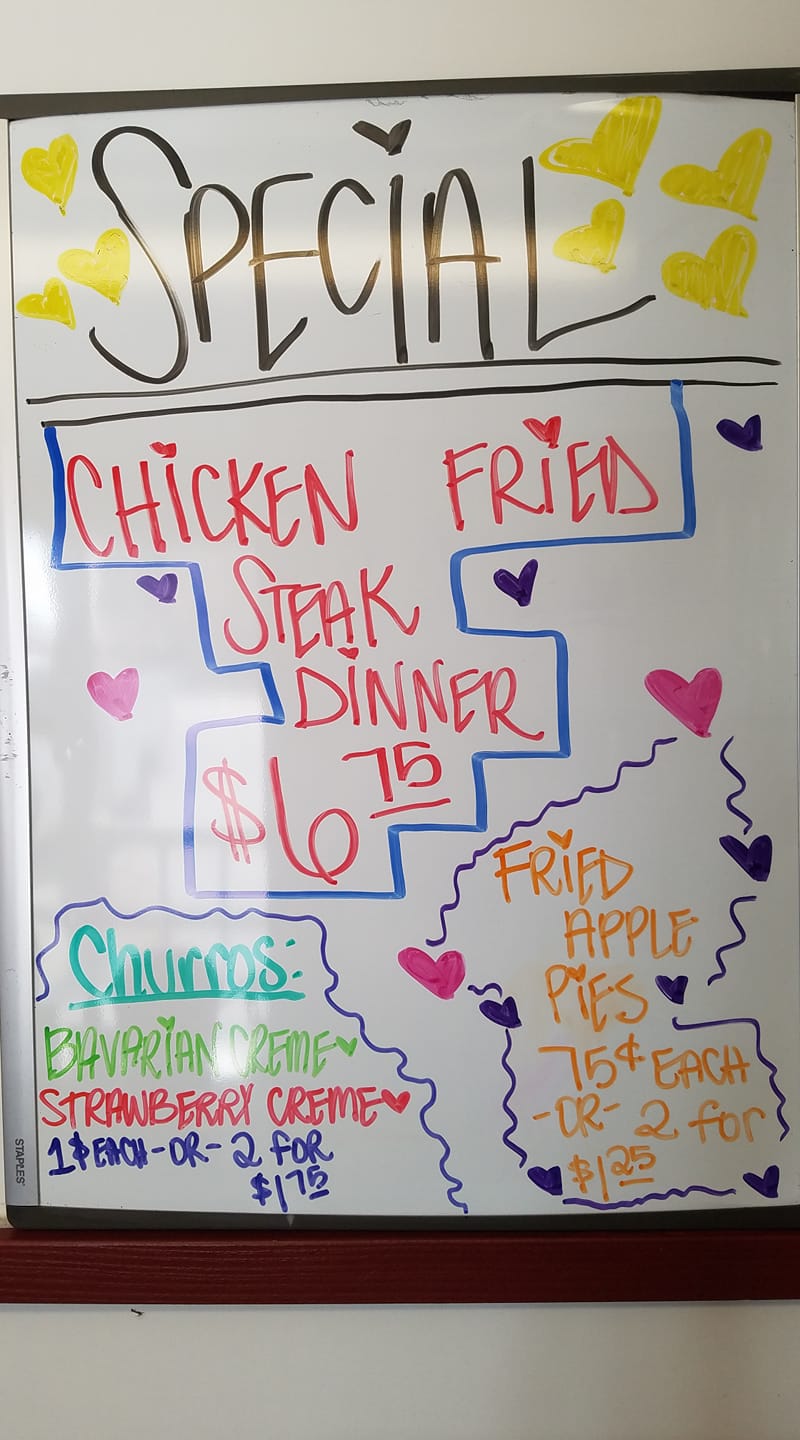 SPECIAL
CHICKEN FRIED
STEAK
DINNER
$6 75
Churros:
BAVARIAN CREME
STRAWBERRY CREME
1$ EACH -OR- 2 FOR
$1 75
FRIED
APPLE
PIES
75¢ EACH
-OR- 2 for
$1 25
STAPLES